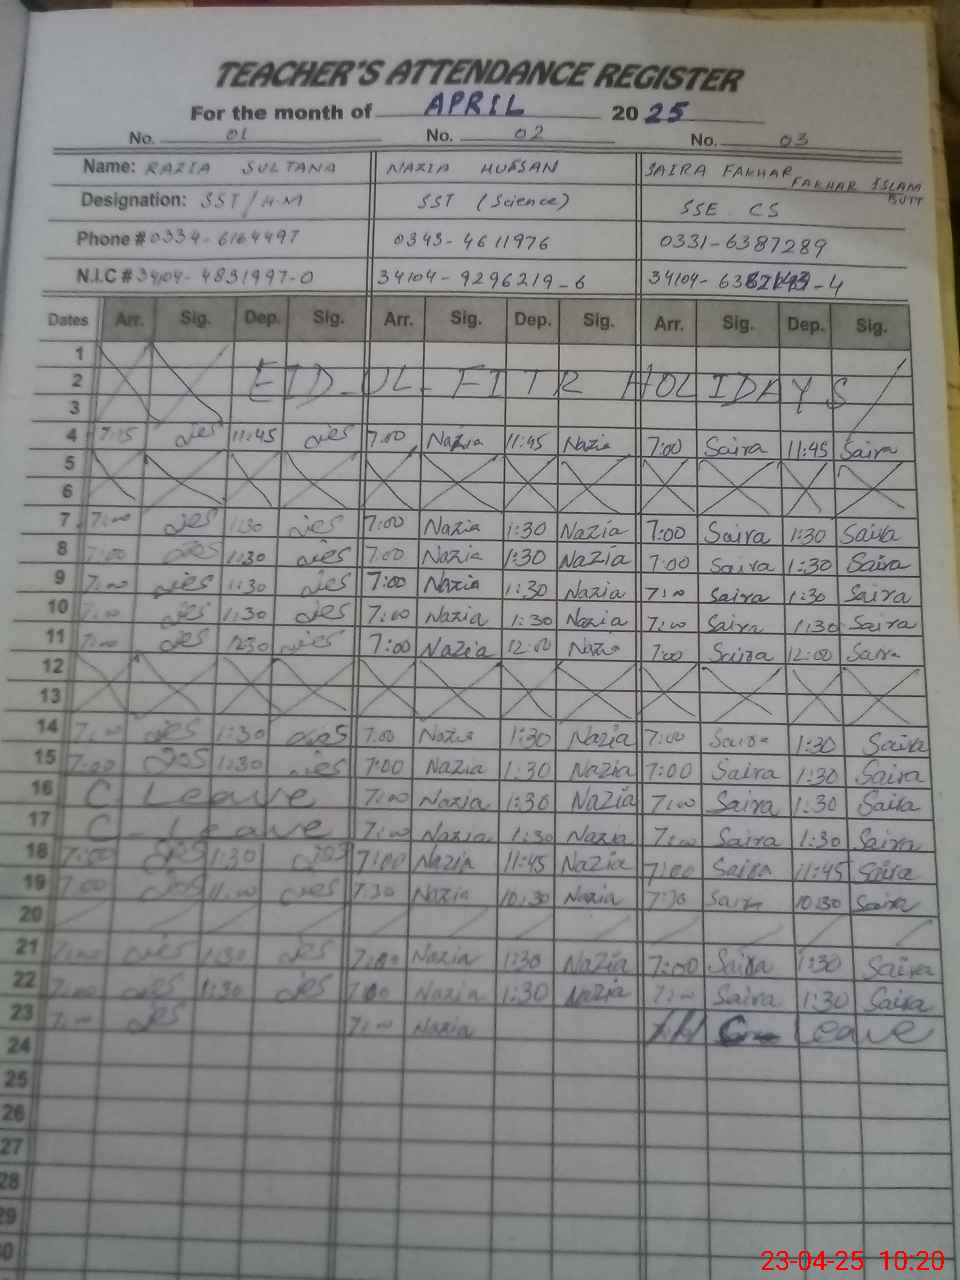 TEACHER'S ATTENDANCE REGISTER
For the month of APRIL 2025
No. 01 No. 02 No. 03
Name: RAZIA SULTANA NAZIA HUSSAN SAIRA FAKHAR FAKHAR ISLAM BUTT
Designation: SST/H.M SST (Science) SSE CS
Phone # 0334-6164497 0343-4611976 0331-6387289
N.I.C # 34104-4831997-0 34104-9296219-6 34104- -4
Dates Arr. Sig. Dep. Sig. Arr. Sig. Dep. Sig. Arr. Sig. Dep. Sig.
1
2 EID-UL-FITR HOLIDAYS
3
4 7:15 11:45 7:00 Nazia 11:45 Nazia 7:00 Saira 11:45 Saira
5
6
7 7:00 1:30 7:00 Nazia 1:30 Nazia 7:00 Saira 1:30 Saira
8 7:00 1:30 7:00 Nazia 1:30 Nazia 7:00 Saira 1:30 Saira
9 7:00 1:30 7:00 Nazia 1:30 Nazia 7:00 Saira 1:30 Saira
10 7:00 1:30 7:00 Nazia 1:30 Nazia 7:00 Saira 1:30 Saira
11 7:00 1230 7:00 Nazia 12:00 Nazia 7:00 Saira 12:00 Saira
12
13
14 7:00 1:30 7:00 Nazia 1:30 Nazia 7:00 Saira 1:30 Saira
15 7:00 1:30 7:00 Nazia 1:30 Nazia 7:00 Saira 1:30 Saira
16 C Leave 7:00 Nazia 1:30 Nazia 7:00 Saira 1:30 Saira
17 C-Leave 7:00 Nazia 1:30 Nazia 7:00 Saira 1:30 Saira
18 7:00 1:30 7:00 Nazia 11:45 Nazia 7:00 Saira 11:45 Saira
19 7:00 11:00 7:30 Nazia 10:30 Nazia 7:30 Saira 10:30 Saira
20
21 7:00 1:30 7:00 Nazia 1:30 Nazia 7:00 Saira 1:30 Saira
22 7:00 1:30 7:00 Nazia 1:30 Nazia 7:00 Saira 1:30 Saira
23 7:00 7:00 Nazia C leave
24
25
26
27
28
29
30
23-04-25 10:20